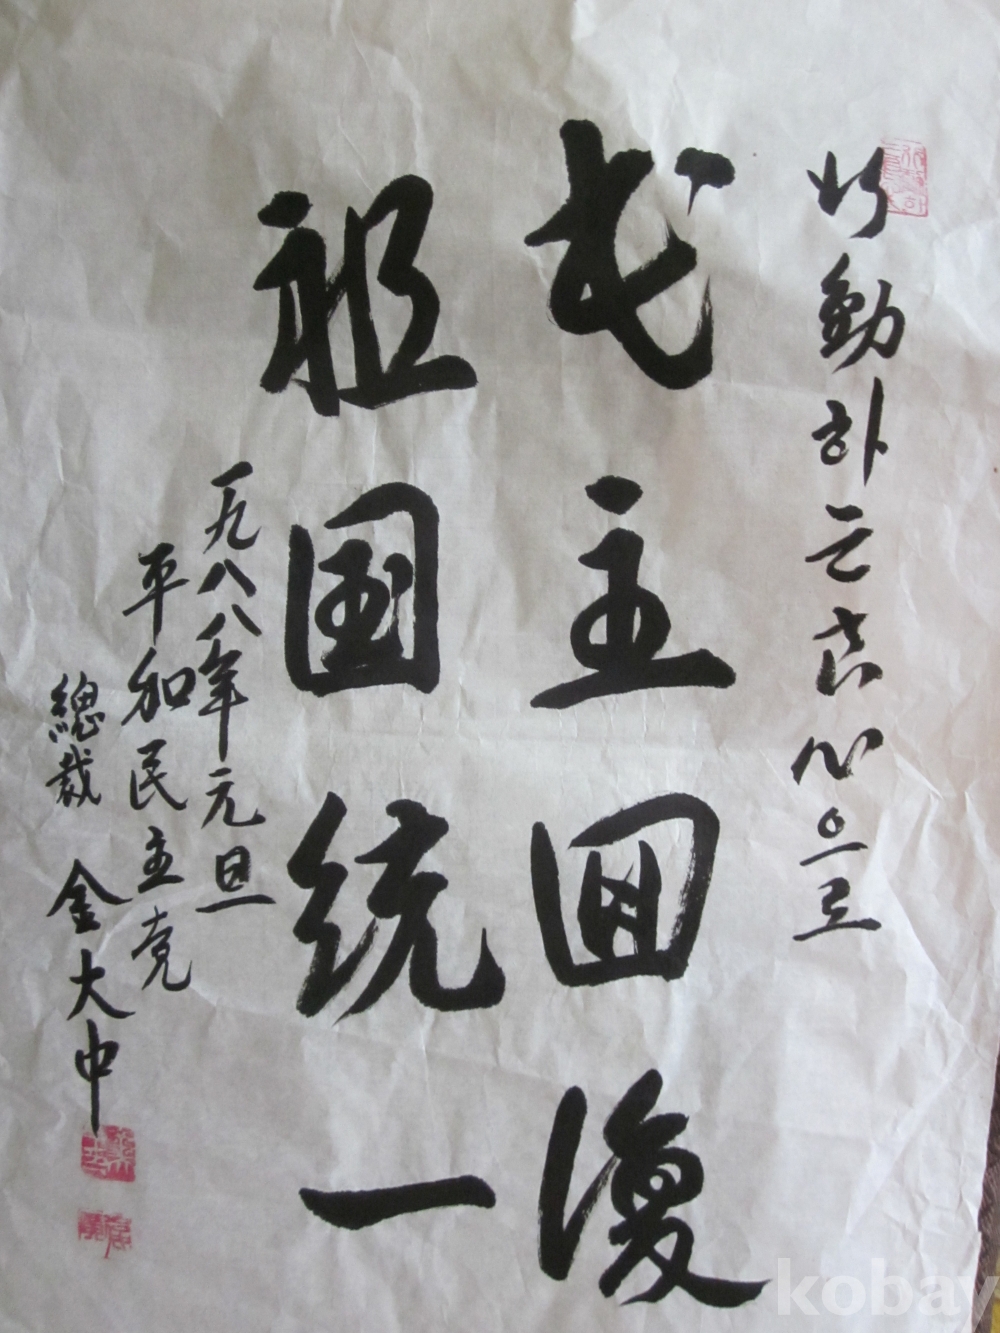 行動하는良心으로
民主囬復
祖国統一
一九八八年元旦
平和民主党
總裁 金大中
kobay